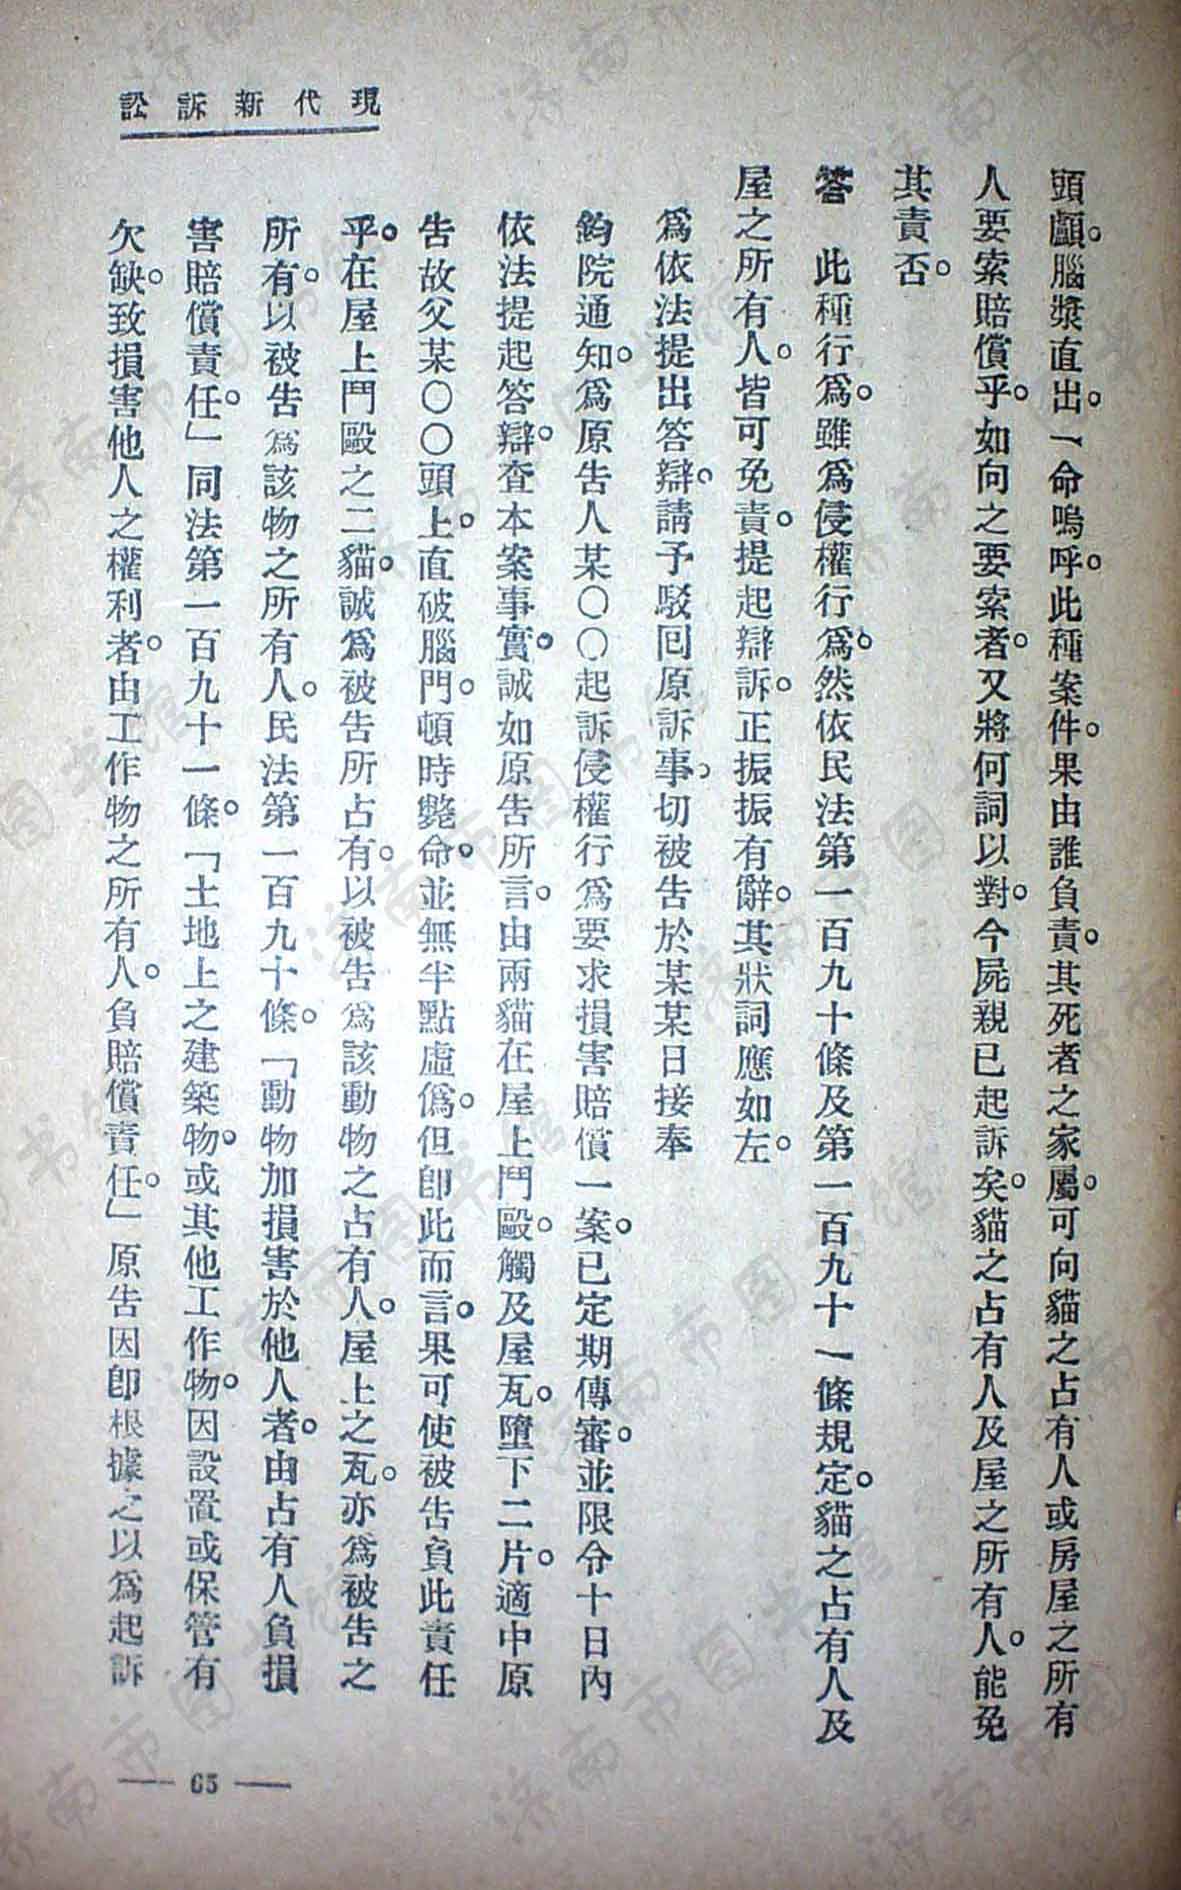 現代新訴訟
頭顱。腦漿直出。一命嗚呼。此種案件。果由誰負責。其死者之家屬。可向貓之占有人或房屋之所有
人要索賠償乎。如向之要索者。又將何詞以對。今屍親已起訴矣。貓之占有人及屋之所有人。能免
其責否。
答　此種行爲。雖爲侵權行爲。然依民法第一百九十條及第一百九十一條規定。貓之占有人及
屋之所有人。皆可免責。提起辯訴。正振振有辭。其狀詞應如左。
爲依法提出答辯。請予駁回原訴事。切被告於某某日接奉
鈞院通知。爲原告人某〇〇起訴侵權行爲要求損害賠償一案。已定期傳審。並限令十日內
依法提起答辯。查本案事實。誠如原告所言。由兩貓在屋上鬥毆。觸及屋瓦。墮下二片。適中原
告故父某〇〇頭上。直破腦門。頓時斃命。並無半點虛僞。但卽此而言。果可使被告負此責任
乎。在屋上鬥毆之二貓。誠爲被告所占有。以被告爲該動物之占有人。屋上之瓦。亦爲被告之
所有。以被告爲該物之所有人。民法第一百九十條。「動物加損害於他人者。由占有人負損
害賠償責任。」同法第一百九十一條。「土地上之建築物。或其他工作物。因設置或保管有
欠缺。致損害他人之權利者。由工作物之所有人。負賠償責任。」原告因卽根據之以爲起訴
— 65 —
济南市图书馆